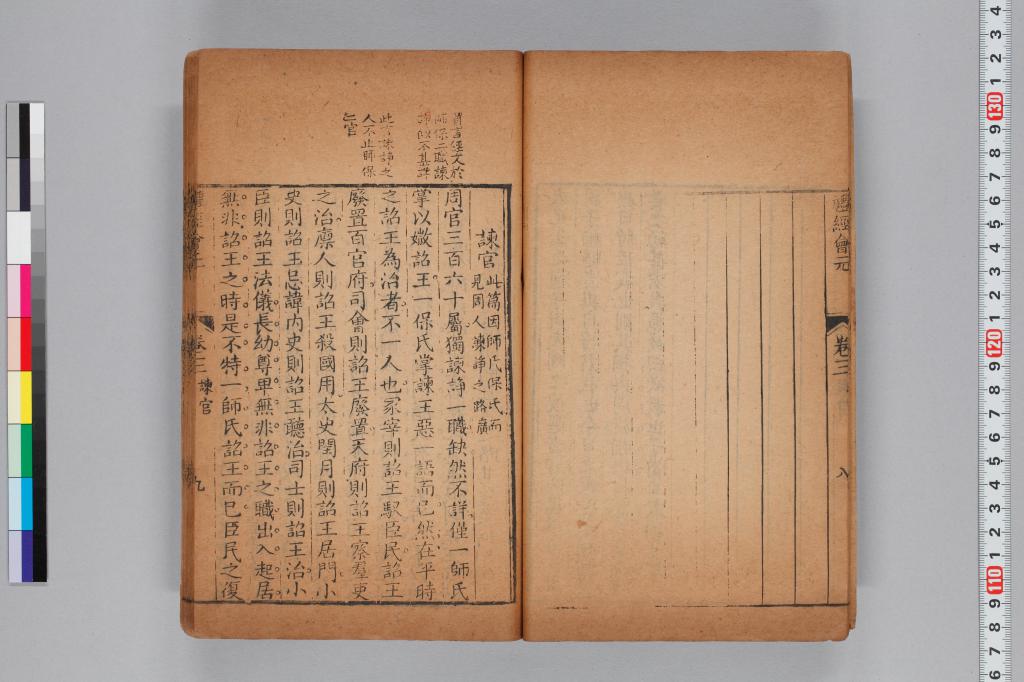 禮經會元
卷三
八
諫官
此篇因師氏保氏而
見周人諫諍之路廣
周官三百六十屬獨諫諍一職缺然不詳僅一師氏
掌以媺詔王一保氏掌諫王惡一語而已然在平時
之詔王為治者不一人也冢宰則詔王馭臣民詔王
廢置百官府司會則詔王廢置天府則詔王察羣吏
之治廩人則詔王殺國用太史閏月則詔王居門小
史則詔王忌諱內史則詔王聽治司士則詔王治小
臣則詔王法儀長幼尊卑無非詔王之職出入起居
無非詔王之時是不特一師氏詔王而已臣民之復
首言經文於
師保二職諫
諍似不甚詳
此下諫諍之
人不止師保
二官
卷三
諫官
九